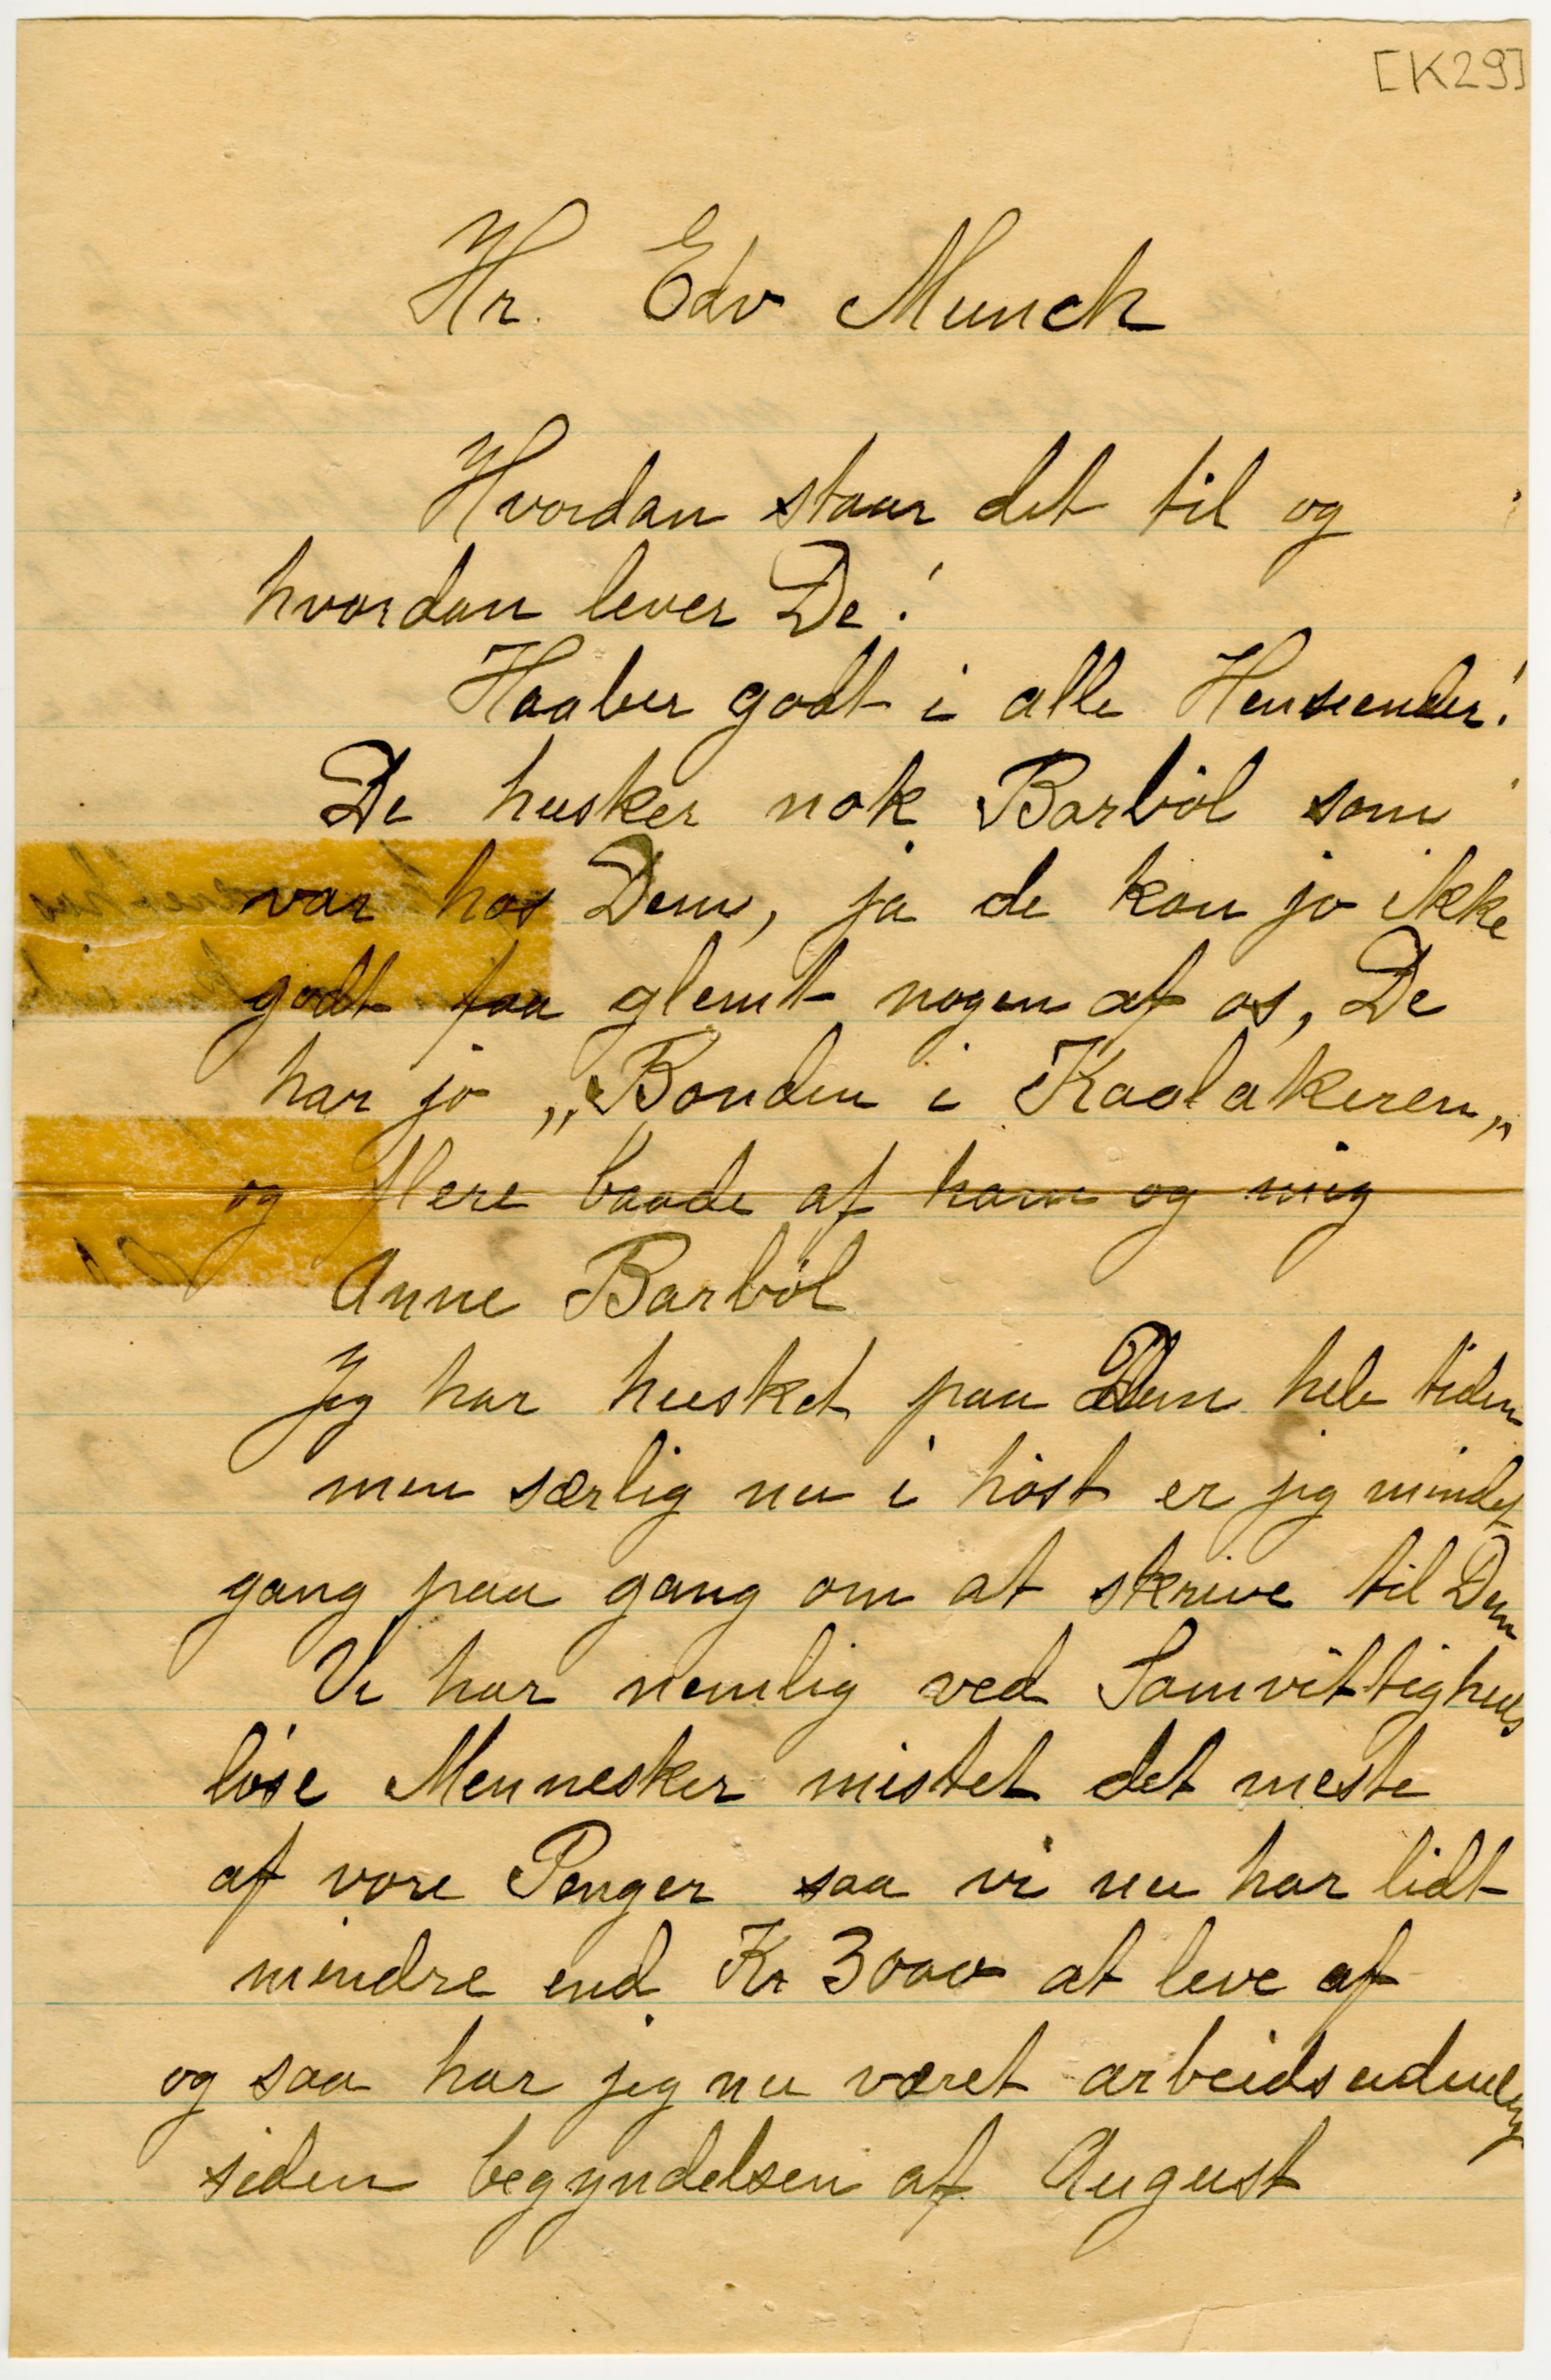 [K29]
Hr. Edv Munch
Hvordan staar det til og
hvordan lever De!
Haaber godt i alle Henseender!
De husker nok Barböl som
var hos Dem, ja de kan jo ikke
godt faa glemt nogen af os, De
har jo „Bonden i Kaalakeren„
og flere baade af ham og mig
Anne Barböl
Jeg har husket paa Dem hele tiden
men særlig nu i höst er jeg mindet
gang paa gang om at skrive til Dem
Vi har nemlig ved Samvittigheds
löse Mennesker mistet det meste
af vore Penger saa vi nu har lidt
mindre end Kr 3000 at leve af
og saa har jeg nu været arbeidsuduelig
siden begyndelsen af August